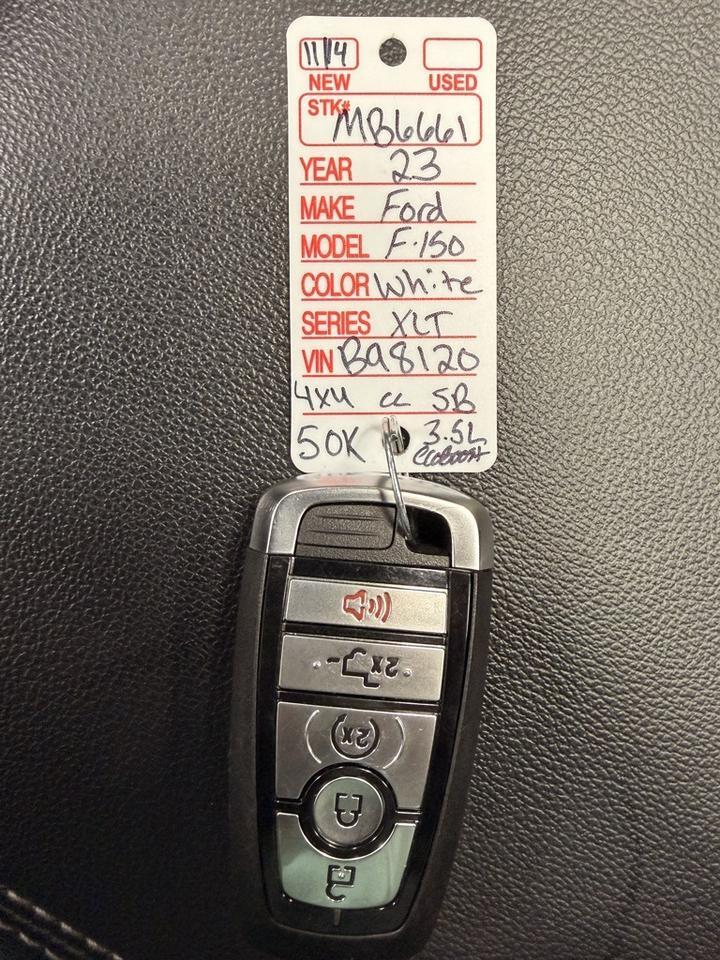 11/14
NEW USED
STK# MB6661
YEAR 23
MAKE Ford
MODEL F-150
COLOR White
SERIES XLT
VIN B98120
4X4 CC SB
50K 3.5L
ecoboost
2x
2x